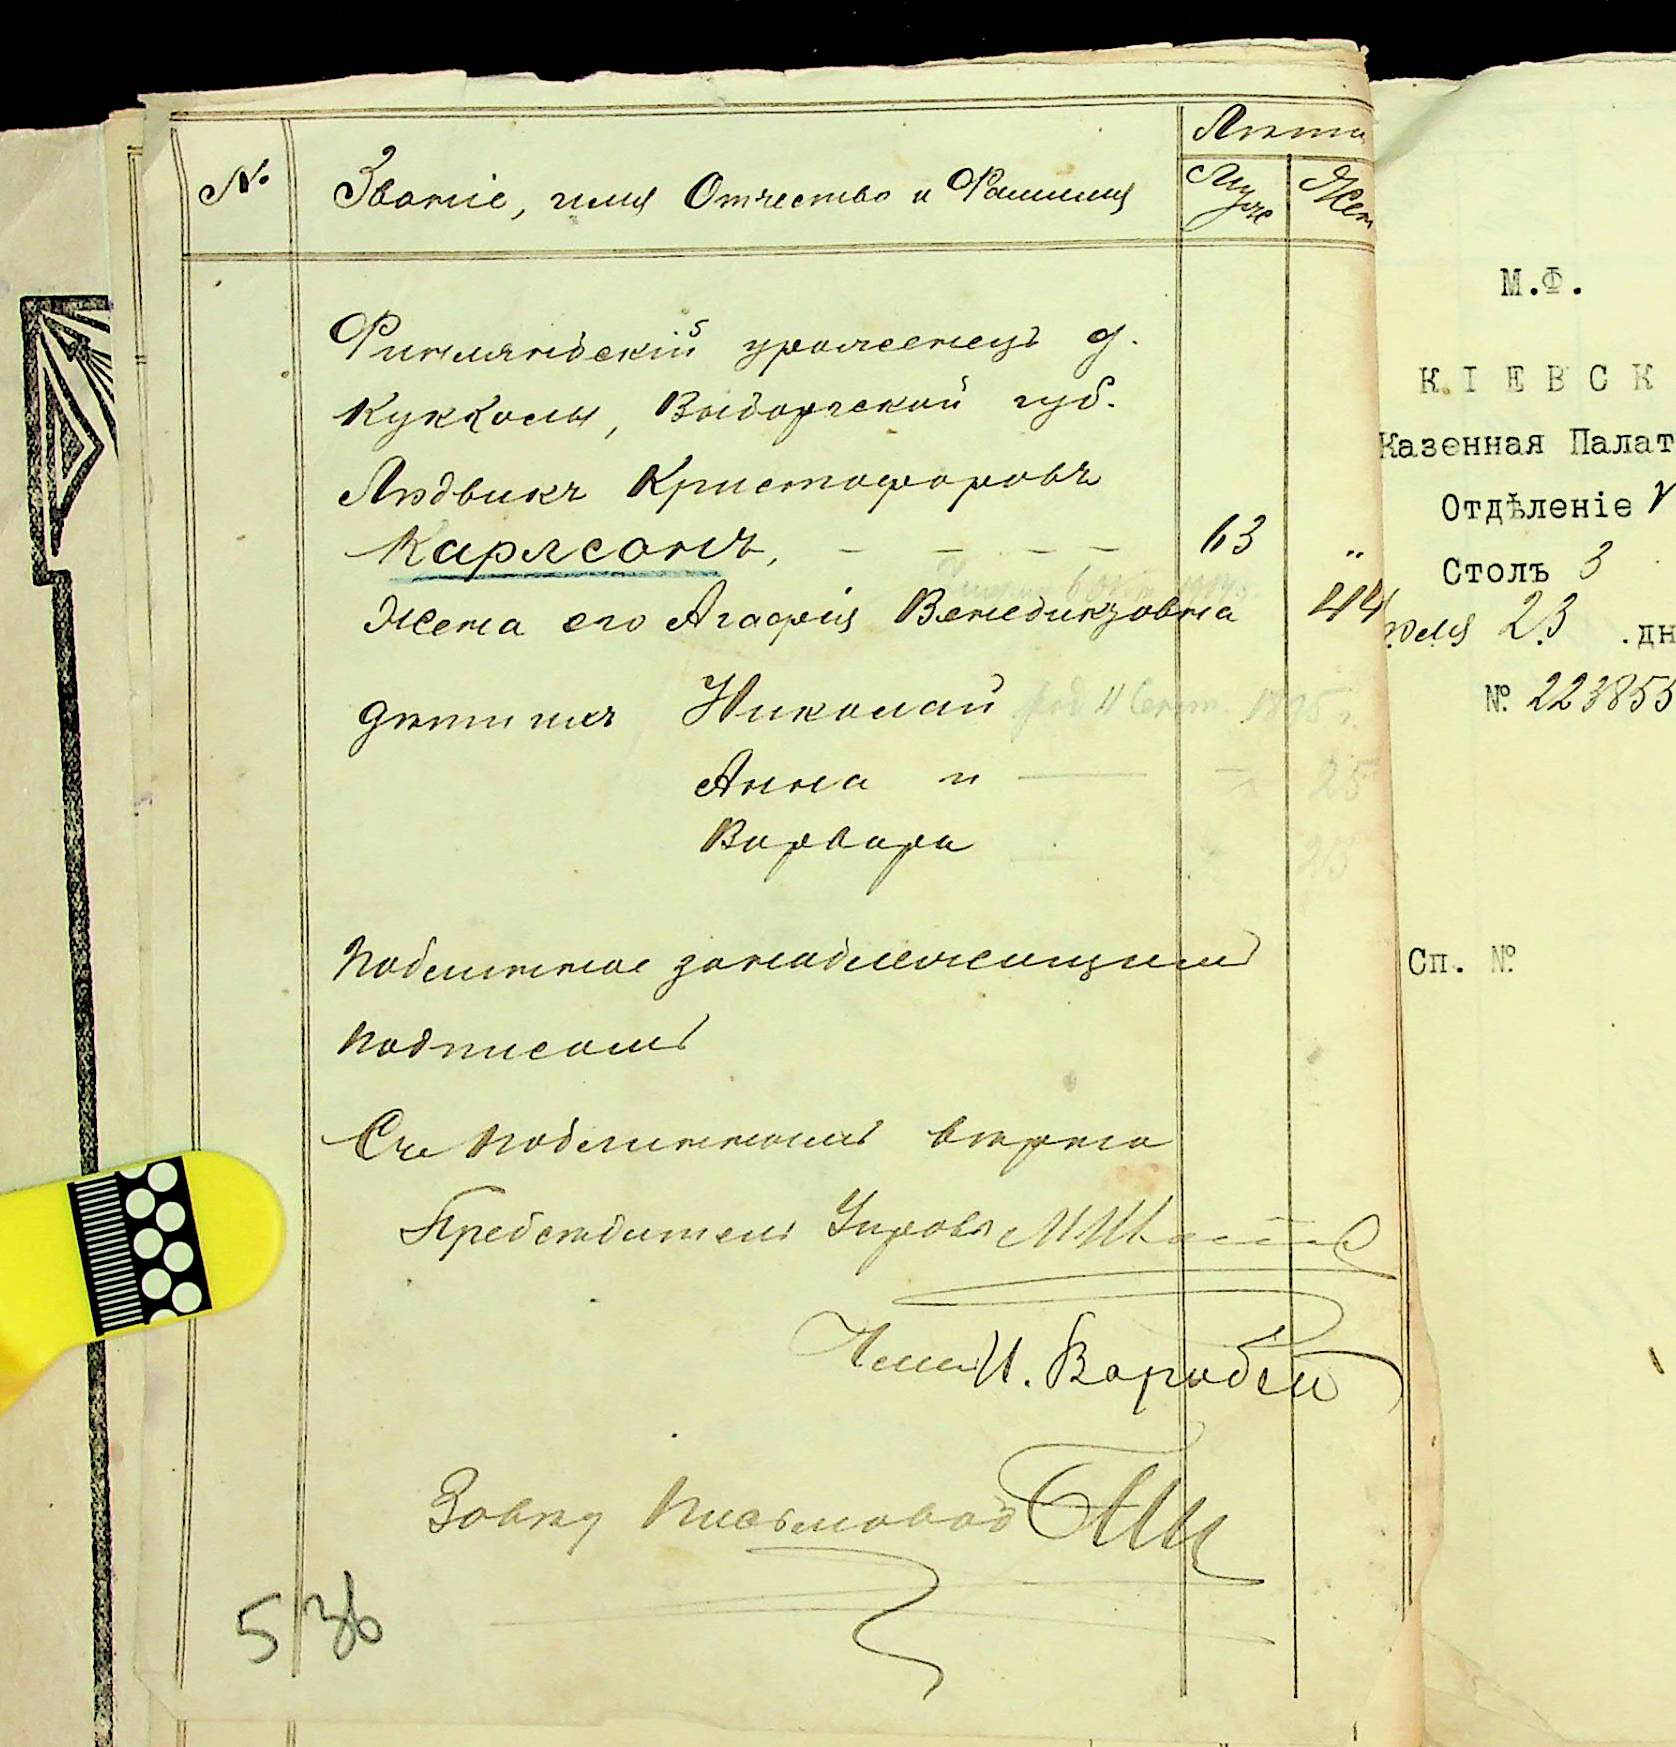 № Званіе, имя Отчество и Фамилия
Лѣта
Муж
Жен
Финляндскій уроженецъ д.
Кукколы, Выборгской губ.
Людвикъ Кристофоровъ
Карлсонъ, – – – – 63 „
Жена его Агафія Венедиктовна 44
дѣти ихъ Николай род 11 Сент. 1895 г.
Анна и — – 25
Варвара
Подлинное за надлежащимъ
подписомъ
Съ подлиннымъ вѣрно
Предсѣдатель Управы
Член И. Воробей
Завѣд Письмовод
5 36
М.Ф.
КІЕВСК
Казенная Палат
Отдѣленіе V
Столъ 3
23 .дн
№ 223855
Сп. №